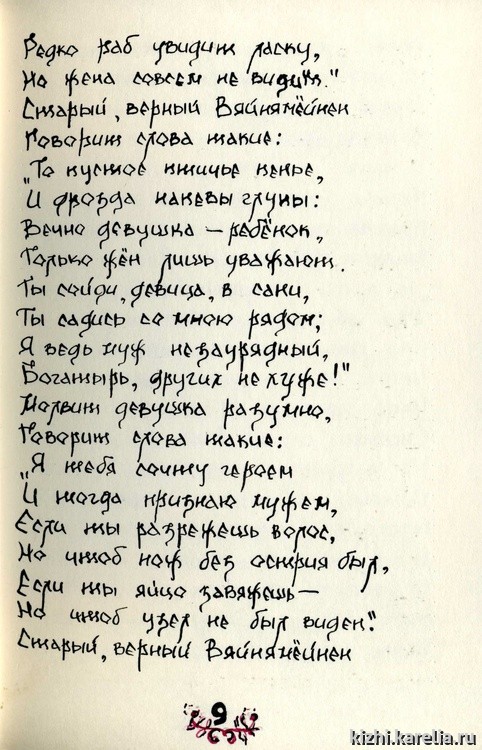 Редко раб увидит ласку,
Но жена совсем не видит."
Старый, верный Вяйнямёйнен
Говорит слова такие:
„То пустое птичье пенье,
И дрозда напевы глупы:
Вечно девушка — ребёнок,
Только жён лишь уважают.
Ты сойди, девица, в сани,
Ты садись со мною рядом;
Я ведь муж незаурядный,
Богатырь, других не хуже!"
Молвит девушка разумно,
Говорит слова такие:
„Я тебя сочту героем
И тогда признаю мужем,
Если ты разрежешь волос,
Но чтоб нож без острия был,
Если ты яйцо завяжешь —
Но чтоб узел не был виден."
Старый, верный Вяйнямёйнен
9
kizhi.karelia.ru